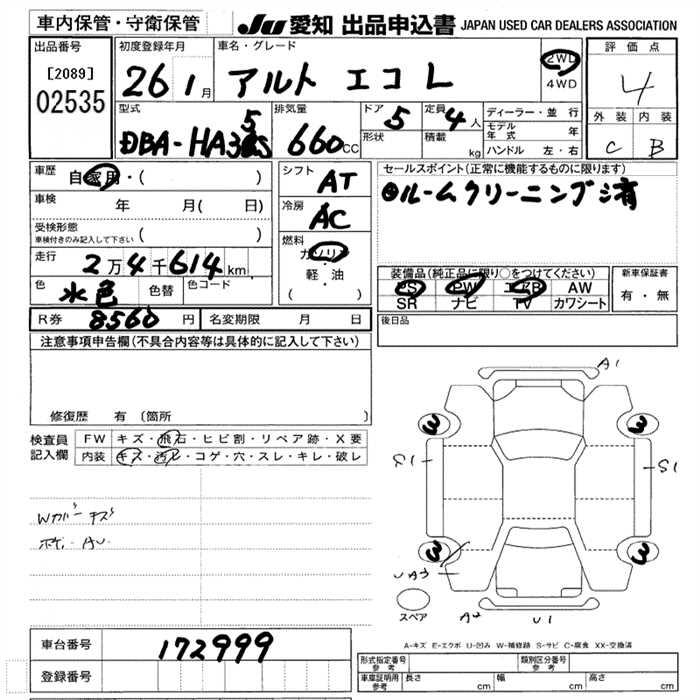 車内保管・守衛保管
JU 愛知 出品申込書 JAPAN USED CAR DEALERS ASSOCIATION
出品番号
[2089]
02535
初度登録年月
26 1月
車名・グレード
アルト エコ L
2WD
4WD
評価点
4
外装 内装
C B
型式
DBA-HA35S
排気量
660cc
ドア 5
形状
定員 4人
積載 kg
ディーラー・並行
モデル年式 年
ハンドル 左・右
車歴 自家用・( )
車検 年 月( 日)
受検形態
車検付きのみ記入して下さい ( )
走行 2万4千614km
色 水色 色替 色コード
シフト AT
冷房 AC
燃料
ガソリン
軽・油
( )
セールスポイント(正常に機能するものに限ります)
◎ルームクリーニング済
装備品(純正品に限り○をつけてください)
PS PW エアB AW
SR ナビ TV カワシート
新車保証書
有・無
R券 8560円 名変期限 月 日
後日品
注意事項申告欄(不具合内容等は具体的に記入して下さい)
修復歴 有 (箇所 )
検査員記入欄
FW キズ・飛石・ヒビ割・リペア跡・X要
内装 キズ・汚レ・コゲ・穴・スレ・キレ・破レ
Wカバーキズ
A1
3 3
S1 S1
3 3
UA3
A2 U1
スペア
A-キズ E-エクボ U-凹み W-補修跡 S-サビ C-腐食 XX-交換済
車台番号 172999
登録番号
形式指定番号 参考
類別区分番号 参考
車庫証明用 参考 長さ cm 幅 cm 高さ cm